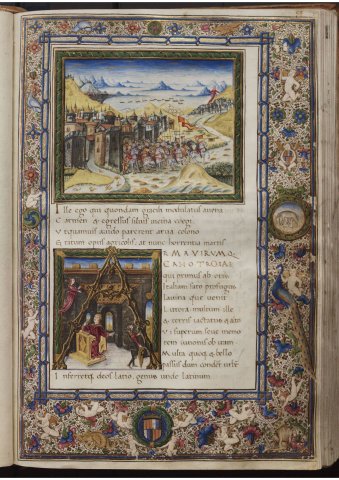 Ille ego qui quondam gracili modulatus auena
Carmen & egressus siluis uicina coegi
Vt quamuis auido parerent arua colono
Gratum opus agricolis. at nunc horrentia martis
ARMA VIRVMQ;
CANO TROIAE
qui primus ab oris
Italiam fato profugus
Lauina que uenit
Litora. multum ille
& terris iactatus & alto
Vi superum seue memo
rem iunonis ob iram
Multa quoq; & bello
passus dum conderet urbē
Inferretq; deos latio. genus unde latinum